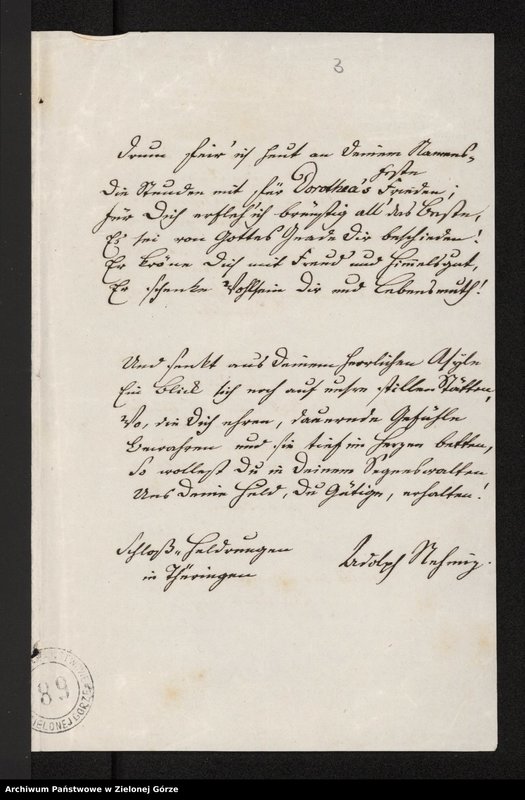 3
Drum feir' ich heut an Deinem Namens-
feste
Die Stunden mit, für Dorothea's Frieden;
für Dich erfleh' ich brünstig all' das Beste,
Es sei von Gottes Gnade Dir beschieden!
Er kröne Dich mit Freud und Himmelsgut,
Er schenke Wohlsein Dir und Lebensmuth!
Und senkt aus Deinem herrlichen Asyle
Ein Blick sich noch auf unsre stillen Stätten,
Wo, die Dich ehren, dauernde Gefühle
Bewahren und sie tief im Herzen betten,
So wollest Du in Deinem Segenswalten
Uns Deine Huld, Du Gütige, erhalten!
Schloß-Heldrungen
in Thüringen
Adolph
89
Archiwum Państwowe w Zielonej Górze